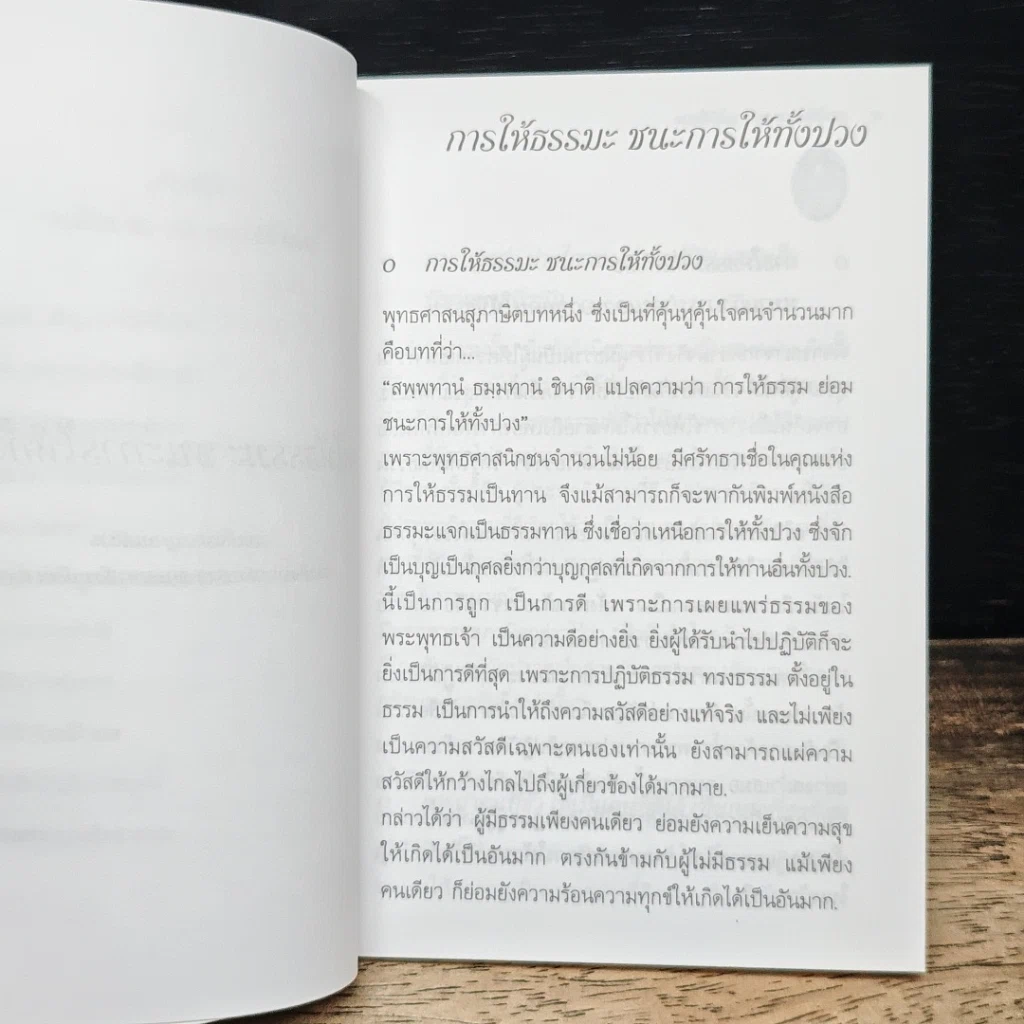 การให้ธรรมะ ชนะการให้ทั้งปวง
๐ การให้ธรรมะ ชนะการให้ทั้งปวง
พุทธศาสนสุภาษิตบทหนึ่ง ซึ่งเป็นที่คุ้นหูคุ้นใจคนจำนวนมาก
คือบทที่ว่า...
“สพฺพทานํ ธมฺมทานํ ชินาติ แปลความว่า การให้ธรรม ย่อม
ชนะการให้ทั้งปวง”
เพราะพุทธศาสนิกชนจำนวนไม่น้อย มีศรัทธาเชื่อในคุณแห่ง
การให้ธรรมเป็นทาน จึงแม้สามารถก็จะพากันพิมพ์หนังสือ
ธรรมะแจกเป็นธรรมทาน ซึ่งเชื่อว่าเหนือการให้ทั้งปวง ซึ่งจัก
เป็นบุญเป็นกุศลยิ่งกว่าบุญกุศลที่เกิดจากการให้ทานอื่นทั้งปวง.
นี้เป็นการถูก เป็นการดี เพราะการเผยแพร่ธรรมของ
พระพุทธเจ้า เป็นความดีอย่างยิ่ง ยิ่งผู้ได้รับนำไปปฏิบัติก็จะ
ยิ่งเป็นการดีที่สุด เพราะการปฏิบัติธรรม ทรงธรรม ตั้งอยู่ใน
ธรรม เป็นการนำให้ถึงความสวัสดีอย่างแท้จริง และไม่เพียง
เป็นความสวัสดีเฉพาะตนเองเท่านั้น ยังสามารถแผ่ความ
สวัสดีให้กว้างไกลไปถึงผู้เกี่ยวข้องได้มากมาย.
กล่าวได้ว่า ผู้มีธรรมเพียงคนเดียว ย่อมยังความเย็นความสุข
ให้เกิดได้เป็นอันมาก ตรงกันข้ามกับผู้ไม่มีธรรม แม้เพียง
คนเดียว ก็ย่อมยังความร้อนความทุกข์ให้เกิดได้เป็นอันมาก.